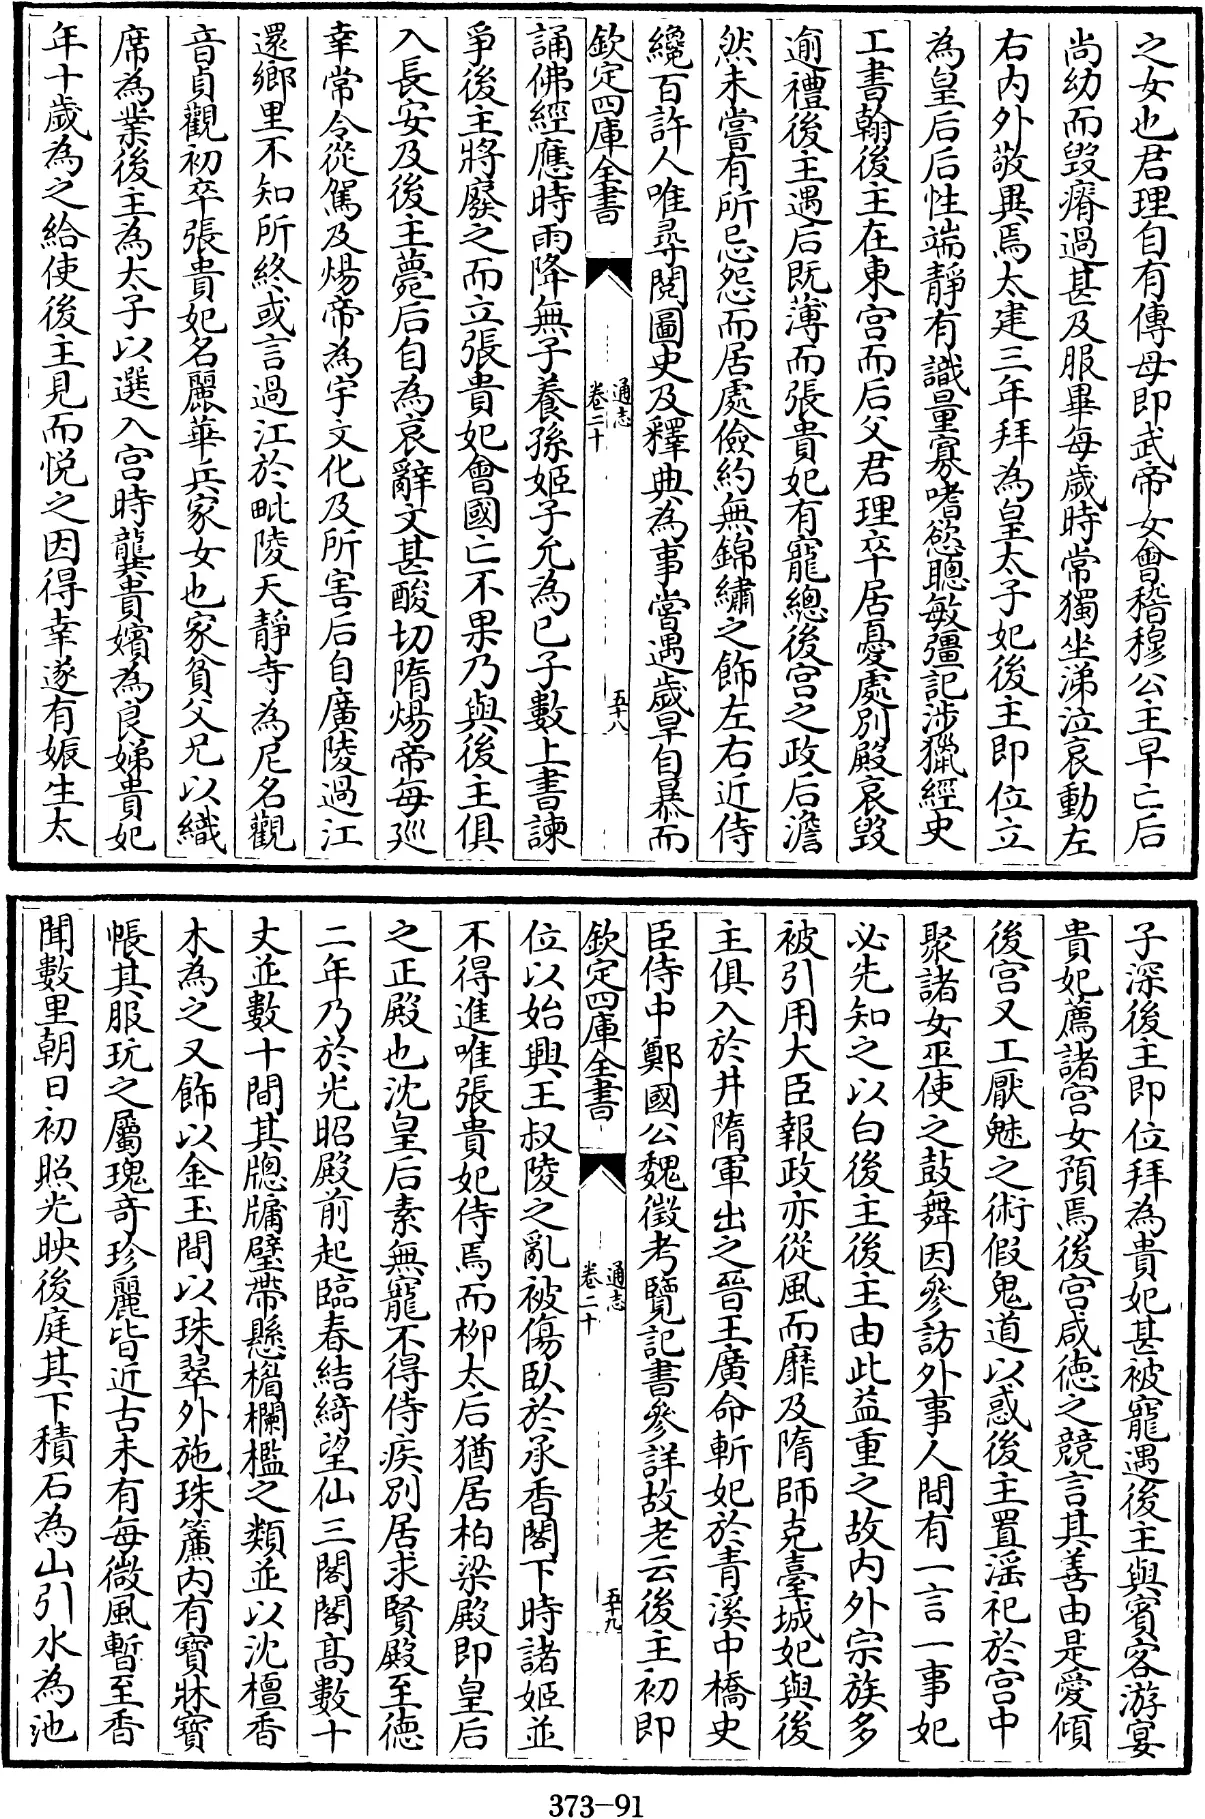 之女也君理自有傳母即武帝女會稽穆公主早亡后
尚幼而毀瘠過甚及服畢每歲時常獨坐涕泣哀動左
右内外敬異焉太建三年拜為皇太子妃後主即位立
為皇后后性端靜有識量寡嗜慾聰敏彊記涉獵經史
工書翰後主在東宮而后父君理卒居憂處別殿哀毀
逾禮後主遇后既薄而張貴妃有寵總後宮之政后澹
然未嘗有所忌怨而居處儉約無錦繡之飾左右近侍
纔百許人唯尋閱圖史及釋典為事嘗遇歲旱自暴而
欽定四庫全書
通志
卷二十
五十八
誦佛經應時雨降無子養孫姬子允為已子數上書諫
爭後主將廢之而立張貴妃會國亡不果乃與後主俱
入長安及後主薨后自為哀辭文甚酸切隋煬帝每巡
幸常令從駕及煬帝為宇文化及所害后自廣陵過江
還鄉里不知所終或言過江於毗陵天靜寺為尼名觀
音貞觀初卒張貴妃名麗華兵家女也家貧父兄以織
席為業後主為太子以選入宮時龔貴嬪為良娣貴妃
年十歲為之給使後主見而悅之因得幸遂有娠生太
子深後主即位拜為貴妃甚被寵遇後主與賓客游宴
貴妃薦諸宮女預焉後宮咸德之競言其善由是愛傾
後宮又工厭魅之術假鬼道以惑後主置淫祀於宮中
聚諸女巫使之鼓舞因參訪外事人間有一言一事妃
必先知之以白後主後主由此益重之故内外宗族多
被引用大臣報政亦從風而靡及隋師克臺城妃與後
主俱入於井隋軍出之晉王廣命斬妃於青溪中橋史
臣侍中鄭國公魏徵考覽記書參詳故老云後主初即
欽定四庫全書
通志
卷二十
五十九
位以始興王叔陵之亂被傷臥於承香閣下時諸姬並
不得進唯張貴妃侍焉而柳太后猶居柏梁殿即皇后
之正殿也沈皇后素無寵不得侍疾別居求賢殿至德
二年乃於光昭殿前起臨春結綺望仙三閣閣高數十
丈並數十間其牕牖壁帶懸楣欄檻之類並以沈檀香
木為之又飾以金玉間以珠翠外施珠簾内有寶牀寶
帳其服玩之屬瑰奇珍麗皆近古未有每微風暫至香
聞數里朝日初照光映後庭其下積石為山引水為池
373-91